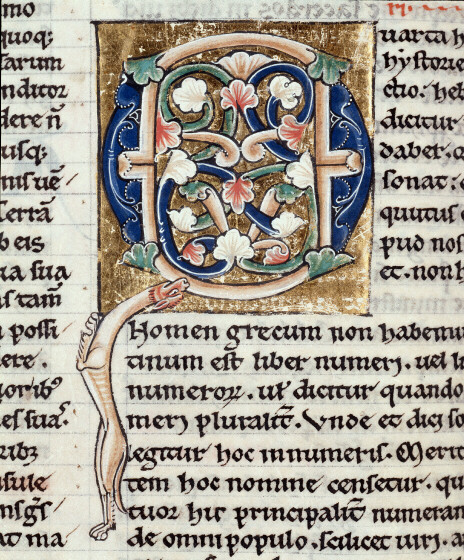 mo
quoq;
sarum
nditor
dere n̄
uisq;
b eis
ua sua
us tam̄
possi
ere.
uorib⁹
es sua.
ribz
usule
at ma
uarta h
hystorie
ctio. heb
dicitur
dabet. q
sonat. e
pud nos
et. non h
Nomen grecum non habemu
tinum est liber numerj. uel li
numeroꝝ. ul̄ dicitur quando
merj pluralit̄. Vnde et dici so
legitur hoc innumeris. Merit
tem hoc nomine censetur. qu
tuor hic principalit̄ numeran
de omni populo. scilicet uirj. a